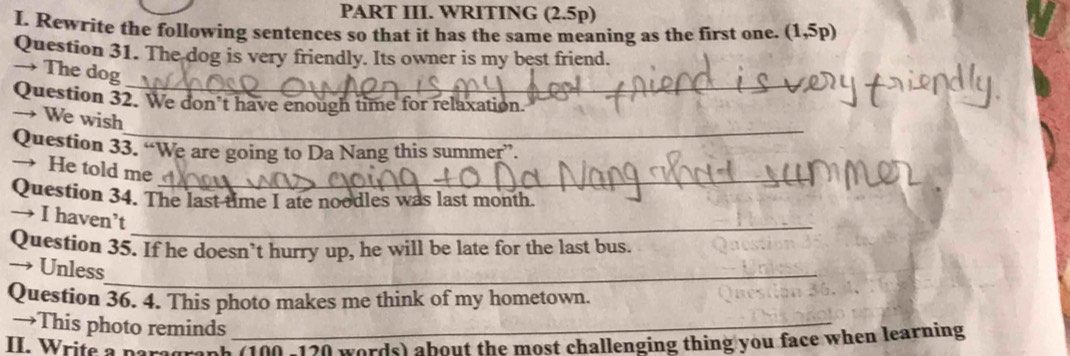 PART III. WRITING (2.5p)
I. Rewrite the following sentences so that it has the same meaning as the first one. (1,5p)
Question 31. The dog is very friendly. Its owner is my best friend.
→ The dog whose owner is my best friend is very friendly.
Question 32. We don't have enough time for relaxation.
→ We wish
Question 33. “We are going to Da Nang this summer”.
→ He told me they was going to Da Nang that summer.
Question 34. The last time I ate noodles was last month.
→ I haven't
Question 35. If he doesn't hurry up, he will be late for the last bus.
→ Unless
Question 36. 4. This photo makes me think of my hometown.
→This photo reminds
II. Write a paragraph (100 -120 words) about the most challenging thing you face when learning